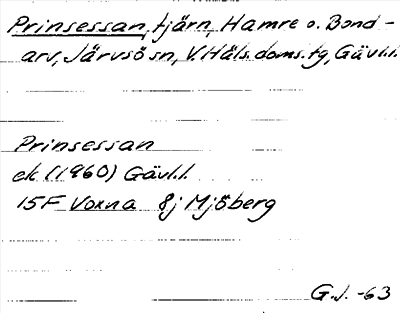 Prinsessan, tjärn, Hamre o. Bond-
arv, Järvsö sn, V. Häls. doms. tg, Gävl.l.
Prinsessan
ek (1960) Gävl.l.
15F Voxna 8j Mjöberg
G.J. -63